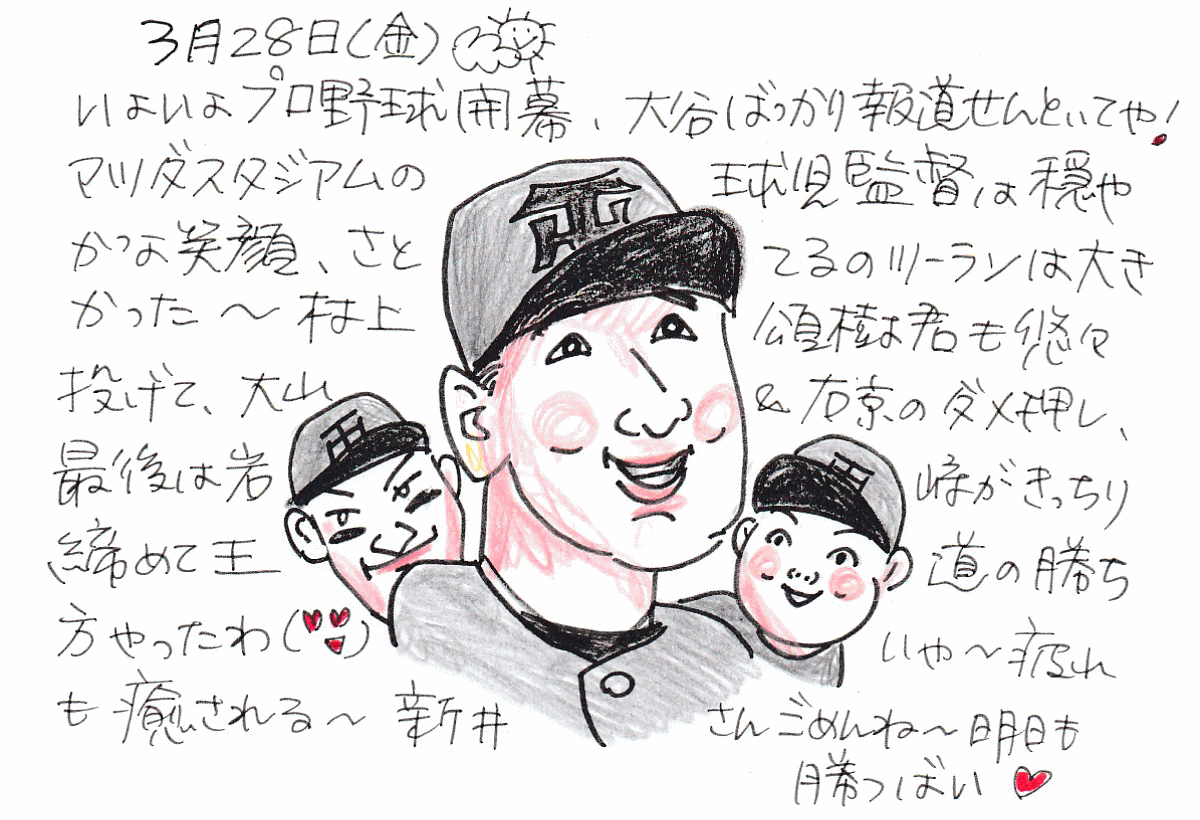 3月28日(金)
いよいよプロ野球開幕、大谷ばっかり報道せんといてや!
マツダスタジアムの 球児監督は穏や
かな笑顔、さと てるのツーランは大き
かった〜村上 頌樹君も悠々
投げて、大山 &右京のダメ押し、
最後は岩 崎がきっちり
締めて王 道の勝ち
方やったわ(♥♥♥) いや〜疲れ
も癒される〜 新井 さんごめんね〜明日も
勝つばい♥